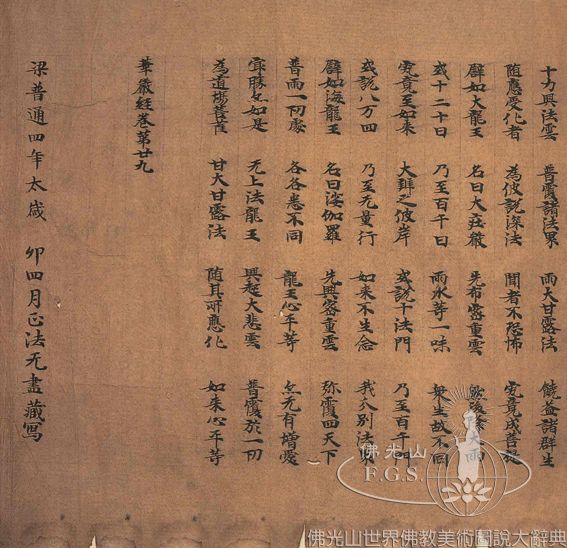 十力興法雲　普覆諸法界　雨大甘露法　饒益諸群生
随應受化者　為彼說深法　聞者不恐怖　究竟成菩提
譬如大龍王　名曰大莊嚴　先布密重雲　大雨
或十二十日　乃至百千日　雨水等一味　生故不同
究竟至如来　大辯之彼岸　或說十法門　乃至百千門
或說八万四　乃至无量行　如来不生念　我分別法
譬如海龍王　名曰娑伽羅　先興密重雲　弥覆四天下
普雨一切處　各各悉不同　龍王心平等　亦无有增愛
冣勝亦如是　无上法龍王　興起大悲雲　普覆於一切
為道場菩薩　甘大甘露法　随其所應化　如来心平等
華嚴經卷第廿九
梁普通四年太歳　卯四月正法无盡藏寫
佛光山
F.G.S.
佛光山世界佛教美術圖說大辭典